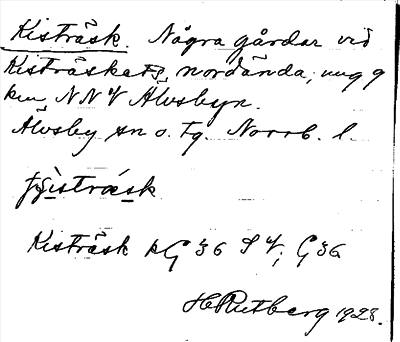 Kisträsk. Några gårdar vid
Kisträskets nordända, ung 9
km NNV Älvsbyn.
Älvsby sn o. tg. Norrb. l.
Kisträsk kG 36 SV; G36
H Rutberg 1928.